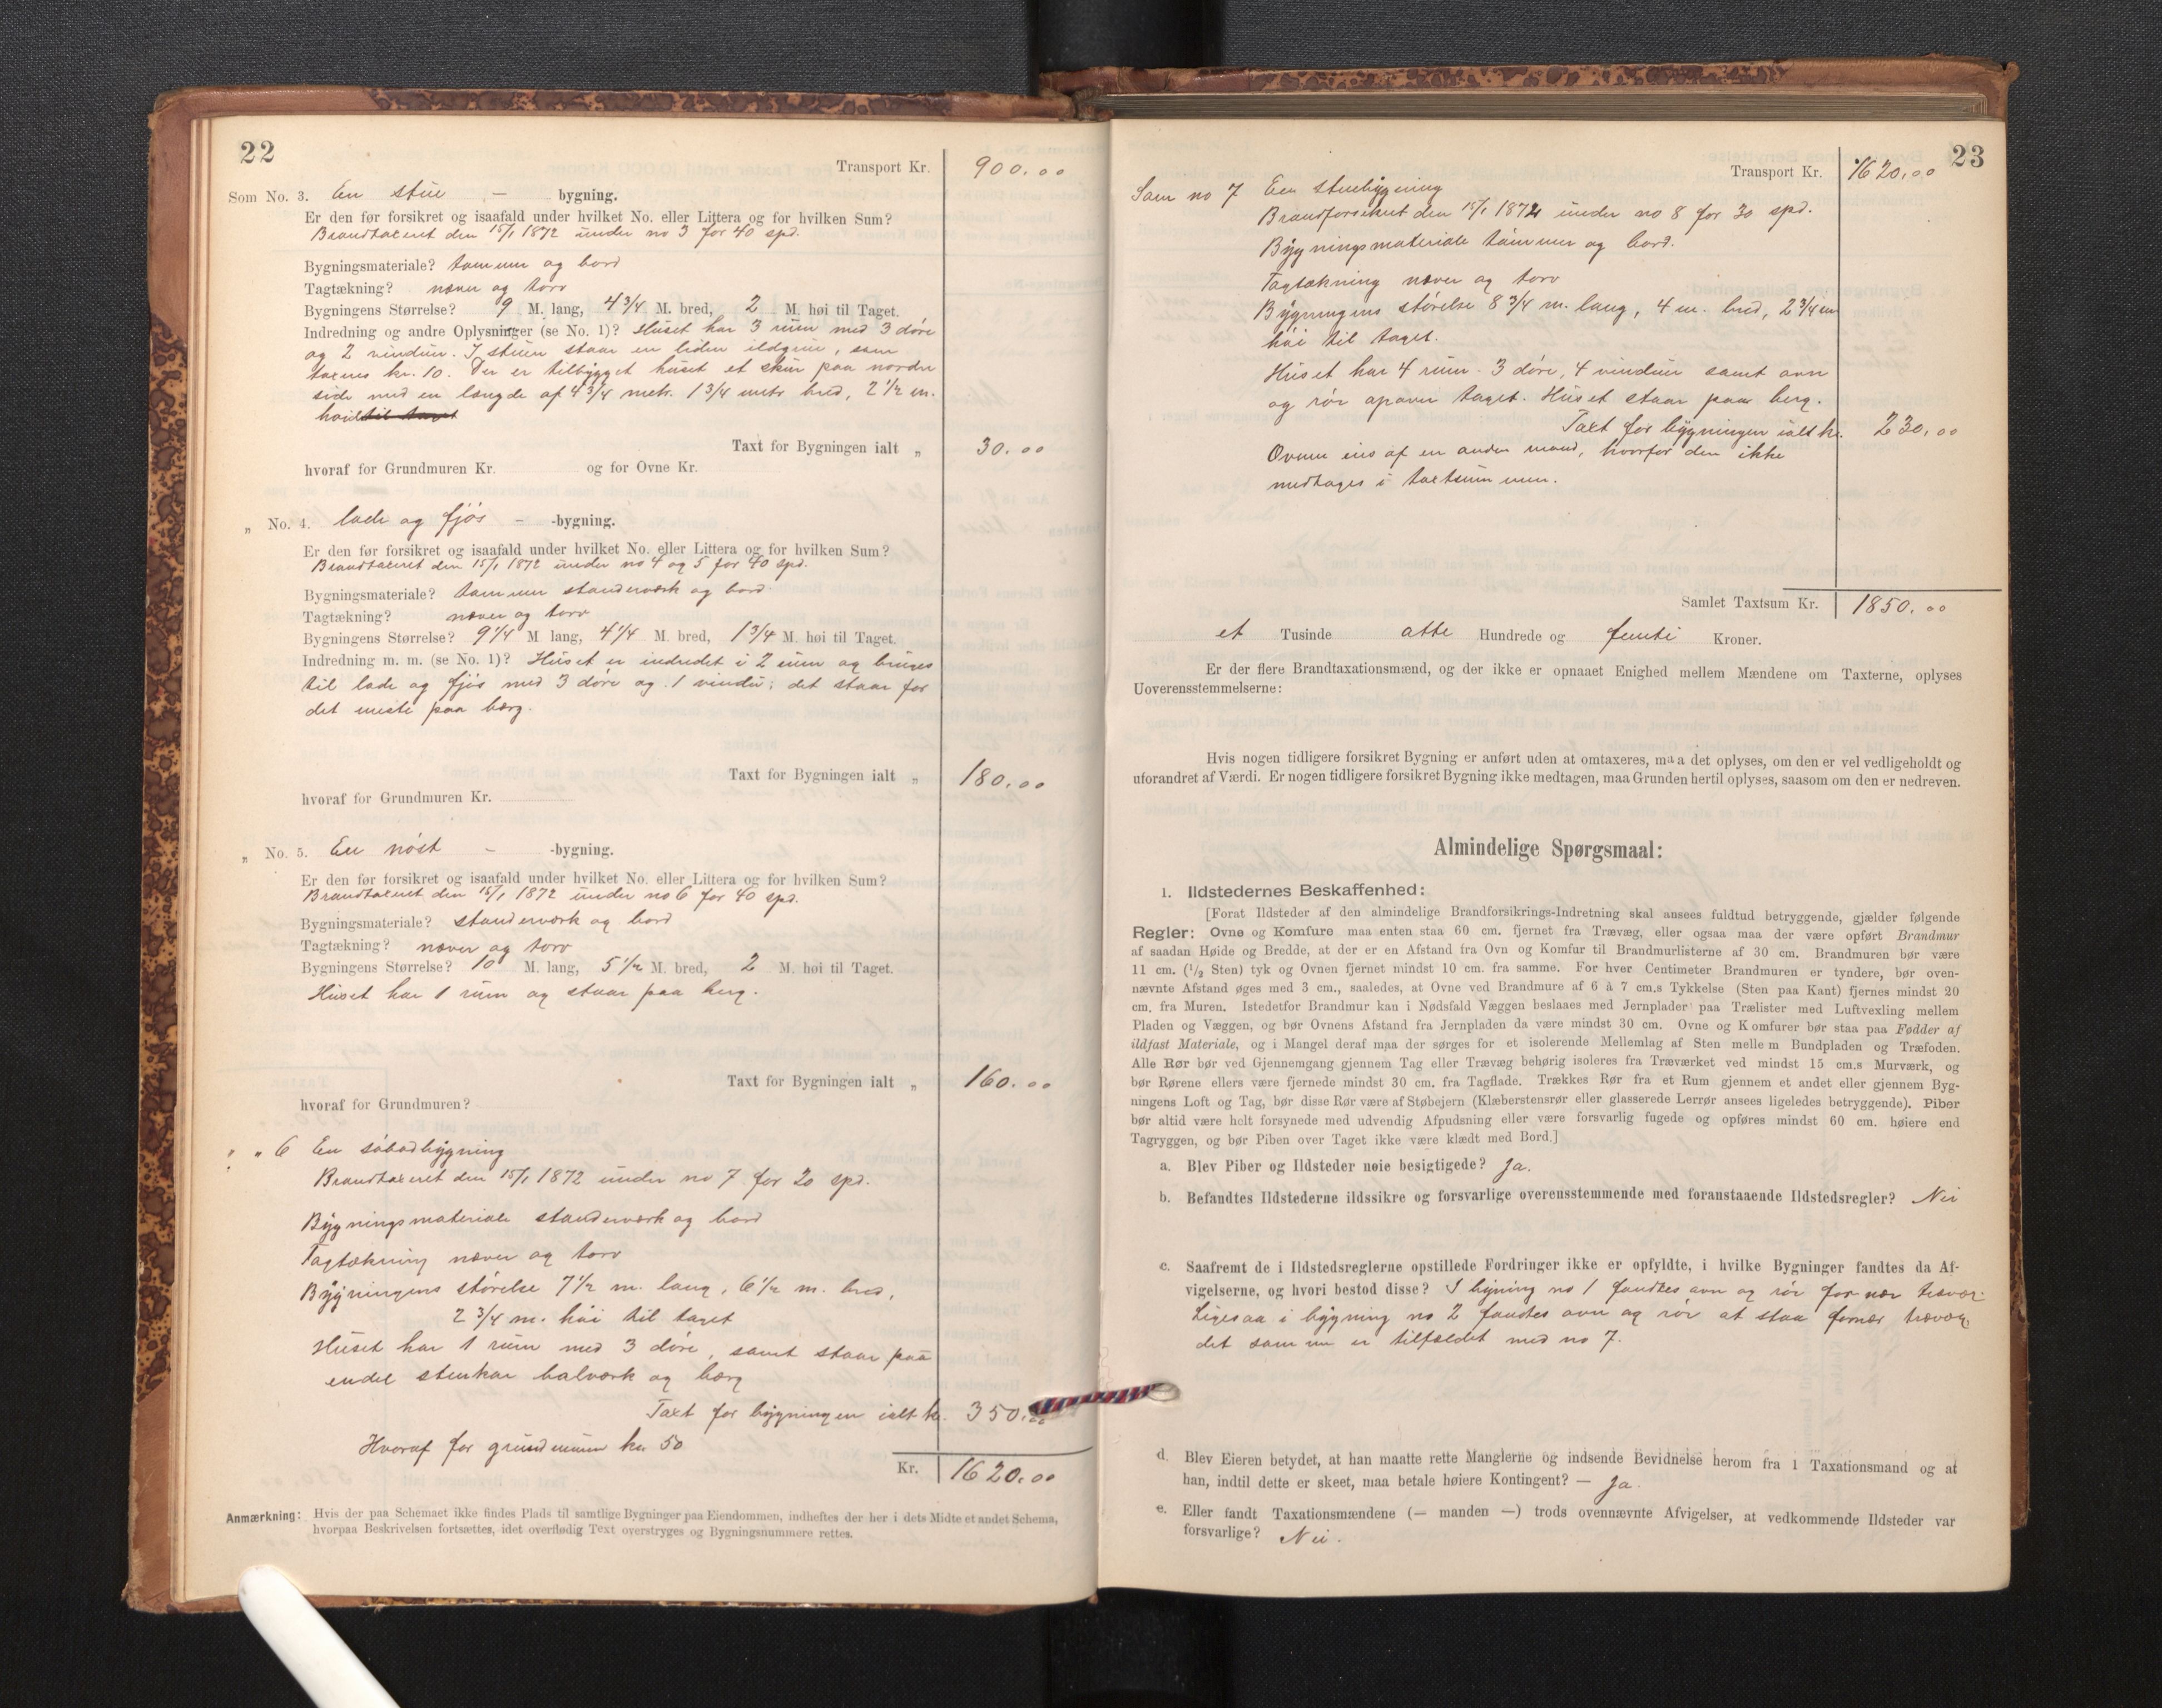 22
Transport Kr. 900.00
Som No. 3. En stue - bygning.
Er den før forsikret og isaafald under hvilket No. eller Littera og for hvilken Sum?
Brandtaxeret den 15/1 1872 under no 3 for 40 spd.
Bygningsmateriale? tømmer og bord
Tagtækning? næver og torv
Bygningens Størrelse? 9 M. lang, 4 3/4 M. bred, 2 M. høi til Taget.
Indredning og andre Oplysninger (se No. 1)? Huset har 3 rum med 3 døre
og 2 vinduer. I stuen staar en liden ildgrue, som
taxeres kr. 10. Der er tilbygget huset et skur paa nordre
side med en længde af 4 3/4 metr. 1 3/4 metr bred, 2 1/2 m.
høid til taget
Taxt for Bygningen ialt „ 30.00
hvoraf for Grundmuren Kr. og for Ovne Kr.
„ No. 4. lade og fjøs - -bygning.
Er den før forsikret og isaafald under hvilket No. eller Littera og for hvilken Sum?
Brandtaxeret den 15/1 1872 under no 4 og 5 for 40 spd.
Bygningsmateriale? tømmer standerværk og bord
Tagtækning? næver og torv
Bygningens Størrelse? 9 1/4 M. lang, 4 1/4 M. bred, 1 3/4 M. høi til Taget.
Indredning m. m. (se No. 1)? Huset er indredet i 2 rum og bruges
til lade og fjøs med 3 døre og 1 vindu; det staar for
det meste paa bærg.
Taxt for Bygningen ialt „ 180.00
hvoraf for Grundmuren Kr.
„ No. 5. En nøst - -bygning.
Er den før forsikret og isaafald under hvilket No. eller Littera og for hvilken Sum?
Brandtaxeret den 15/1 1872 under no 6 for 40 spd.
Bygningsmateriale? standerværk og bord
Tagtækning? næver og torv
Bygningens Størrelse? 10 M. lang, 5 1/2 M. bred, 2 M. høi til Taget.
Huset har 1 rum og staar paa berg.
Taxt for Bygningen ialt „ 160.00
hvoraf for Grundmuren?
„ „ 6 En søbodbygning
Brandtaxeret den 15/1 1872 under no 7 for 20 spd.
Bygningsmateriale standerværk og bord
Tagtækning næver og torv
Bygningens størelse 7 1/2 m. lang, 6 1/2 m. bred,
2 3/4 m. høi til taget
Huset har 1 rum med 3 døre, samt staar paa
endel stenkar bolværk og bærg
Taxt for bygningen ialt kr. 350.00
Hvoraf for grundmuren kr 50
Kr. 1620.00
Anmærkning: Hvis der paa Schemaet ikke findes Plads til samtlige Bygninger paa Eiendommen, indheftes der her i dets Midte et andet Schema,
hvorpaa Beskrivelsen fortsættes, idet overflødig Text overstryges og Bygningsnummere rettes.
23
Transport Kr. 1620.00
Som no 7 Een stuebygning
Brandforsikret den 15/1 1872 under no 8 for 30 spd.
Bygningsmateriale tømmer og bord.
Tagtækning næver og torv
Bygningens størelse 8 3/4 m. lang, 4 m. bred, 2 3/4 m
høi til taget.
Huset har 4 rum. 3 døre, 4 vinduer samt ovn
og rør apaver taget. Huset staar paa berg.
Taxt for bygningen ialt kr. 230.00
Ovnen eies af en anden mand, hvorfor den ikke
medtages i taxtsummen.
Samlet Taxtsum Kr. 1850.00
et Tusinde otte Hundrede og femti Kroner.
Er der flere Brandtaxationsmænd, og der ikke er opnaaet Enighed mellem Mændene om Taxterne, oplyses
Uoverensstemmelserne:
Hvis nogen tidligere forsikret Bygning er anført uden at omtaxeres, maa det oplyses, om den er vel vedligeholdt og
uforandret af Værdi. Er nogen tidligere forsikret Bygning ikke medtagen, maa Grunden hertil oplyses, saasom om den er nedreven.
Almindelige Spørgsmaal:
1. Ildstedernes Beskaffenhed:
[Forat Ildsteder af den almindelige Brandforsikrings-Indretning skal ansees fuldtud betryggende, gjælder følgende
Regler: Ovne og Komfure maa enten staa 60 cm. fjernet fra Trævæg, eller ogsaa maa der være opført Brandmur
af saadan Høide og Bredde, at der er en Afstand fra Ovn og Komfur til Brandmurlisterne af 30 cm. Brandmuren bør være
11 cm. (1/2 Sten) tyk og Ovnen fjernet mindst 10 cm. fra samme. For hver Centimeter Brandmuren er tyndere, bør oven-
nævnte Afstand øges med 3 cm., saaledes, at Ovne ved Brandmure af 6 à 7 cm.s Tykkelse (Sten paa Kant) fjernes mindst 20
cm. fra Muren. Istedetfor Brandmur kan i Nødsfald Væggen beslaaes med Jernplader paa Trælister med Luftvexling mellem
Pladen og Væggen, og bør Ovnens Afstand fra Jernpladen da være mindst 30 cm. Ovne og Komfurer bør staa paa Fødder af
ildfast Materiale, og i Mangel deraf maa der sørges for et isolerende Mellemlag af Sten mellem Bundpladen og Træfoden.
Alle Rør bør ved Gjennemgang gjennem Tag eller Trævæg behørig isoleres fra Træværket ved mindst 15 cm.s Murværk, og
bør Rørene ellers være fjernede mindst 30 cm. fra Tagflade. Trækkes Rør fra et Rum gjennem et andet eller gjennem Byg-
ningens Loft og Tag, bør disse Rør være af Støbejern (Klæberstensrør eller glasserede Lerrør ansees ligeledes betryggende). Piber
bør altid være helt forsynede med udvendig Afpudsning eller være forsvarlig fugede og opføres mindst 60 cm. høiere end
Tagryggen, og bør Piben over Taget ikke være klædt med Bord.]
a. Blev Piber og Ildsteder nøie besigtigede? Ja.
b. Befandtes Ildstederne ildssikre og forsvarlige overensstemmende med foranstaaende Ildstedsregler? Nei
c. Saafremt de i Ildstedsreglerne opstillede Fordringer ikke er opfyldte, i hvilke Bygninger fandtes da Af-
vigelserne, og hvori bestod disse? I bygning no 1 fandtes ovn og rør for nær trævæg.
Ligesaa i bygning no 2 fandtes ovn og rør at staa fornær trævæg,
det samme er tilfældet med no 7.
d. Blev Eieren betydet, at han maatte rette Manglerne og indsende Bevidnelse herom fra 1 Taxationsmand og at
han, indtil dette er skeet, maa betale høiere Kontingent? — Ja.
e. Eller fandt Taxationsmændene (— manden —) trods ovennævnte Afvigelser, at vedkommende Ildsteder var
forsvarlige? Nei.